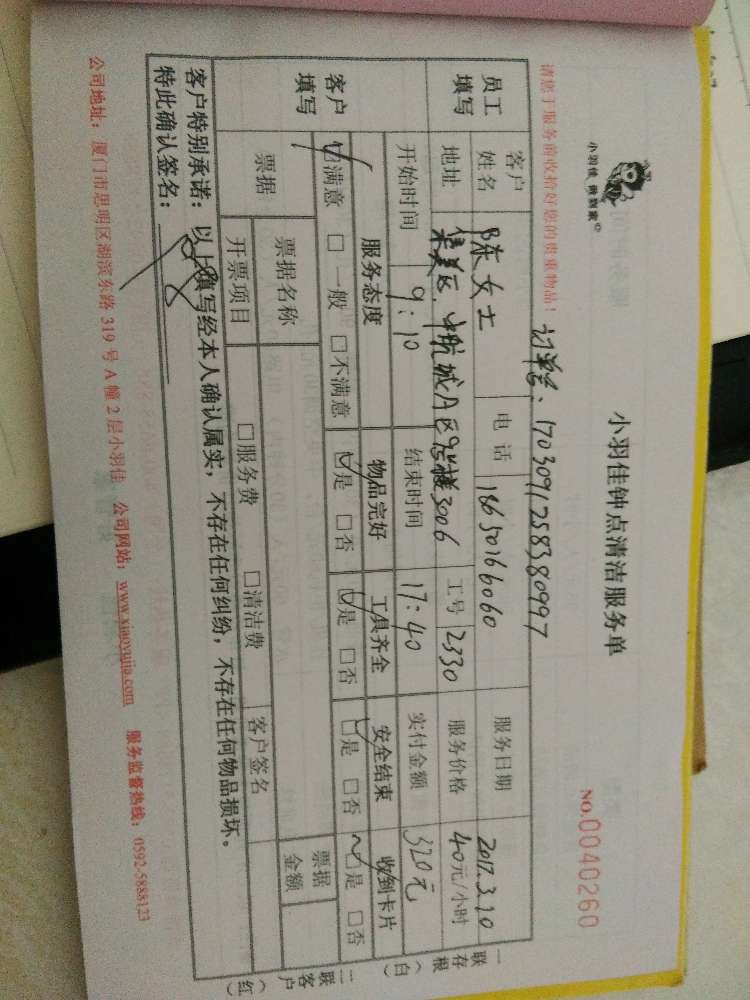 小羽佳 做到家
小羽佳钟点清洁服务单
NO.0040260
请您于服务前收拾好您的贵重物品！
订单号：17030911258380997
员工填写
客户姓名 陈女士 电话 18650166060 服务日期 2017.3.20
地址 集美区 中航城A区 3006 工号 2330 服务价格 40元/小时
开始时间 9:10 结束时间 17:40 实付金额 320元
客户填写
服务态度 物品完好 工具齐全 安全结束 收到卡片
☑满意 □一般 □不满意 ☑是 □否 ☑是 □否 ☑是 □否 ☑是 □否
票据 票据名称 票据金额
开票项目 □服务费 □清洁费 客户签名
客户特别承诺：以上填写经本人确认属实，不存在任何纠纷，不存在任何物品损坏。
特此确认签名：
公司地址：厦门市思明区湖滨东路 319 号 A 幢 2 层小羽佳 公司网站：www.xiaoyujia.com 服务监督热线：0592-5888123
一联存根（白）
二联客户（红）